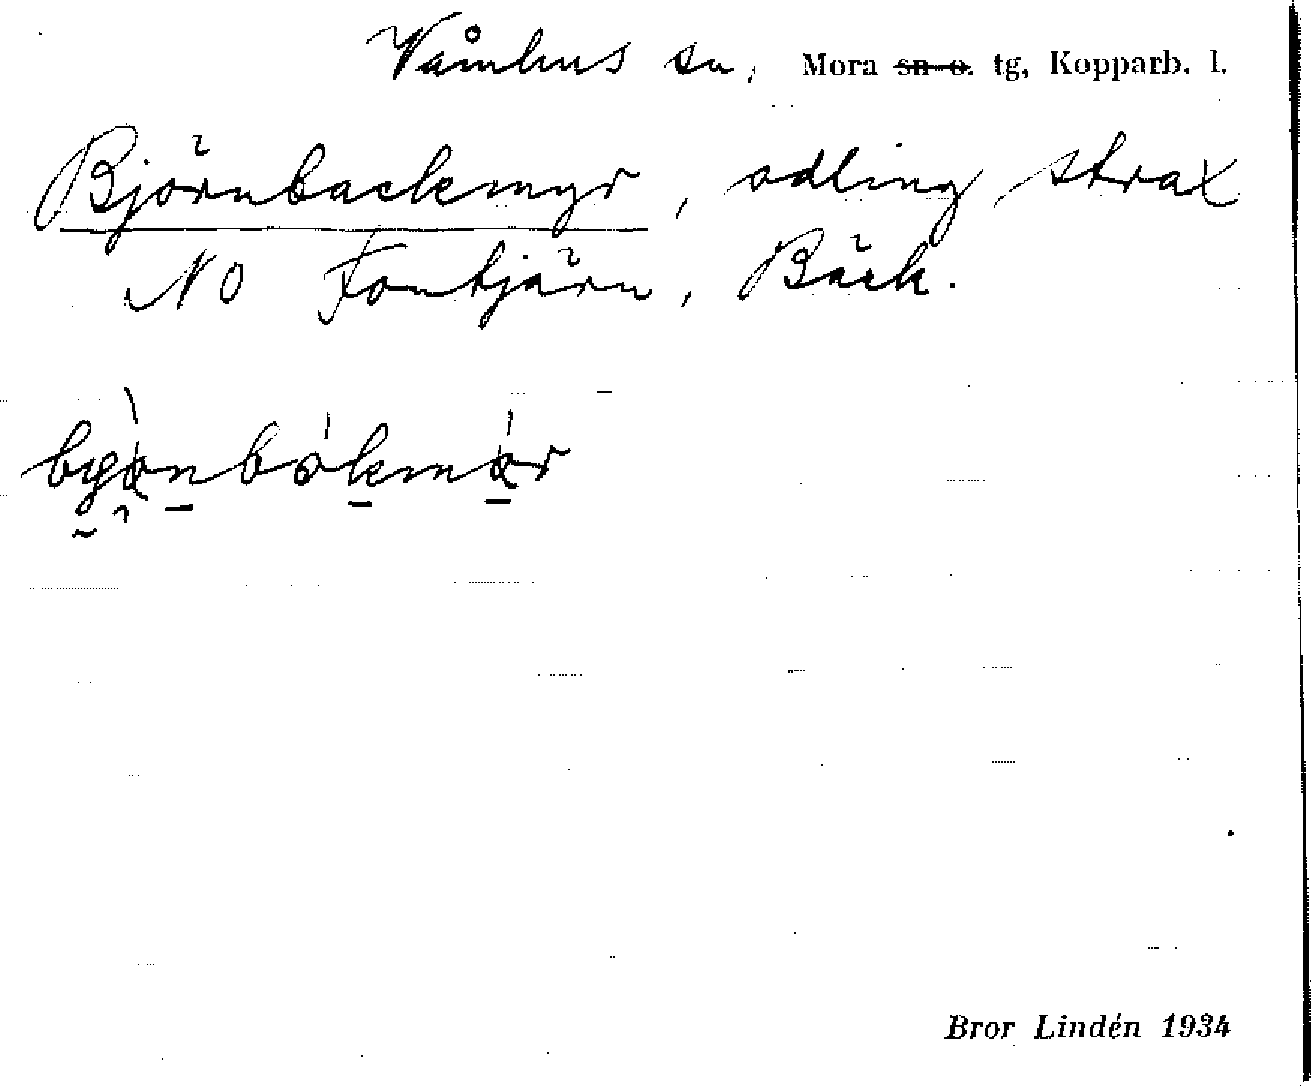 Våmhus sn, Mora sn o. tg, Kopparb. l.
Björnbackmyr, odling strax
NO Fontjärn, Bäck.
Bror Lindén 1934